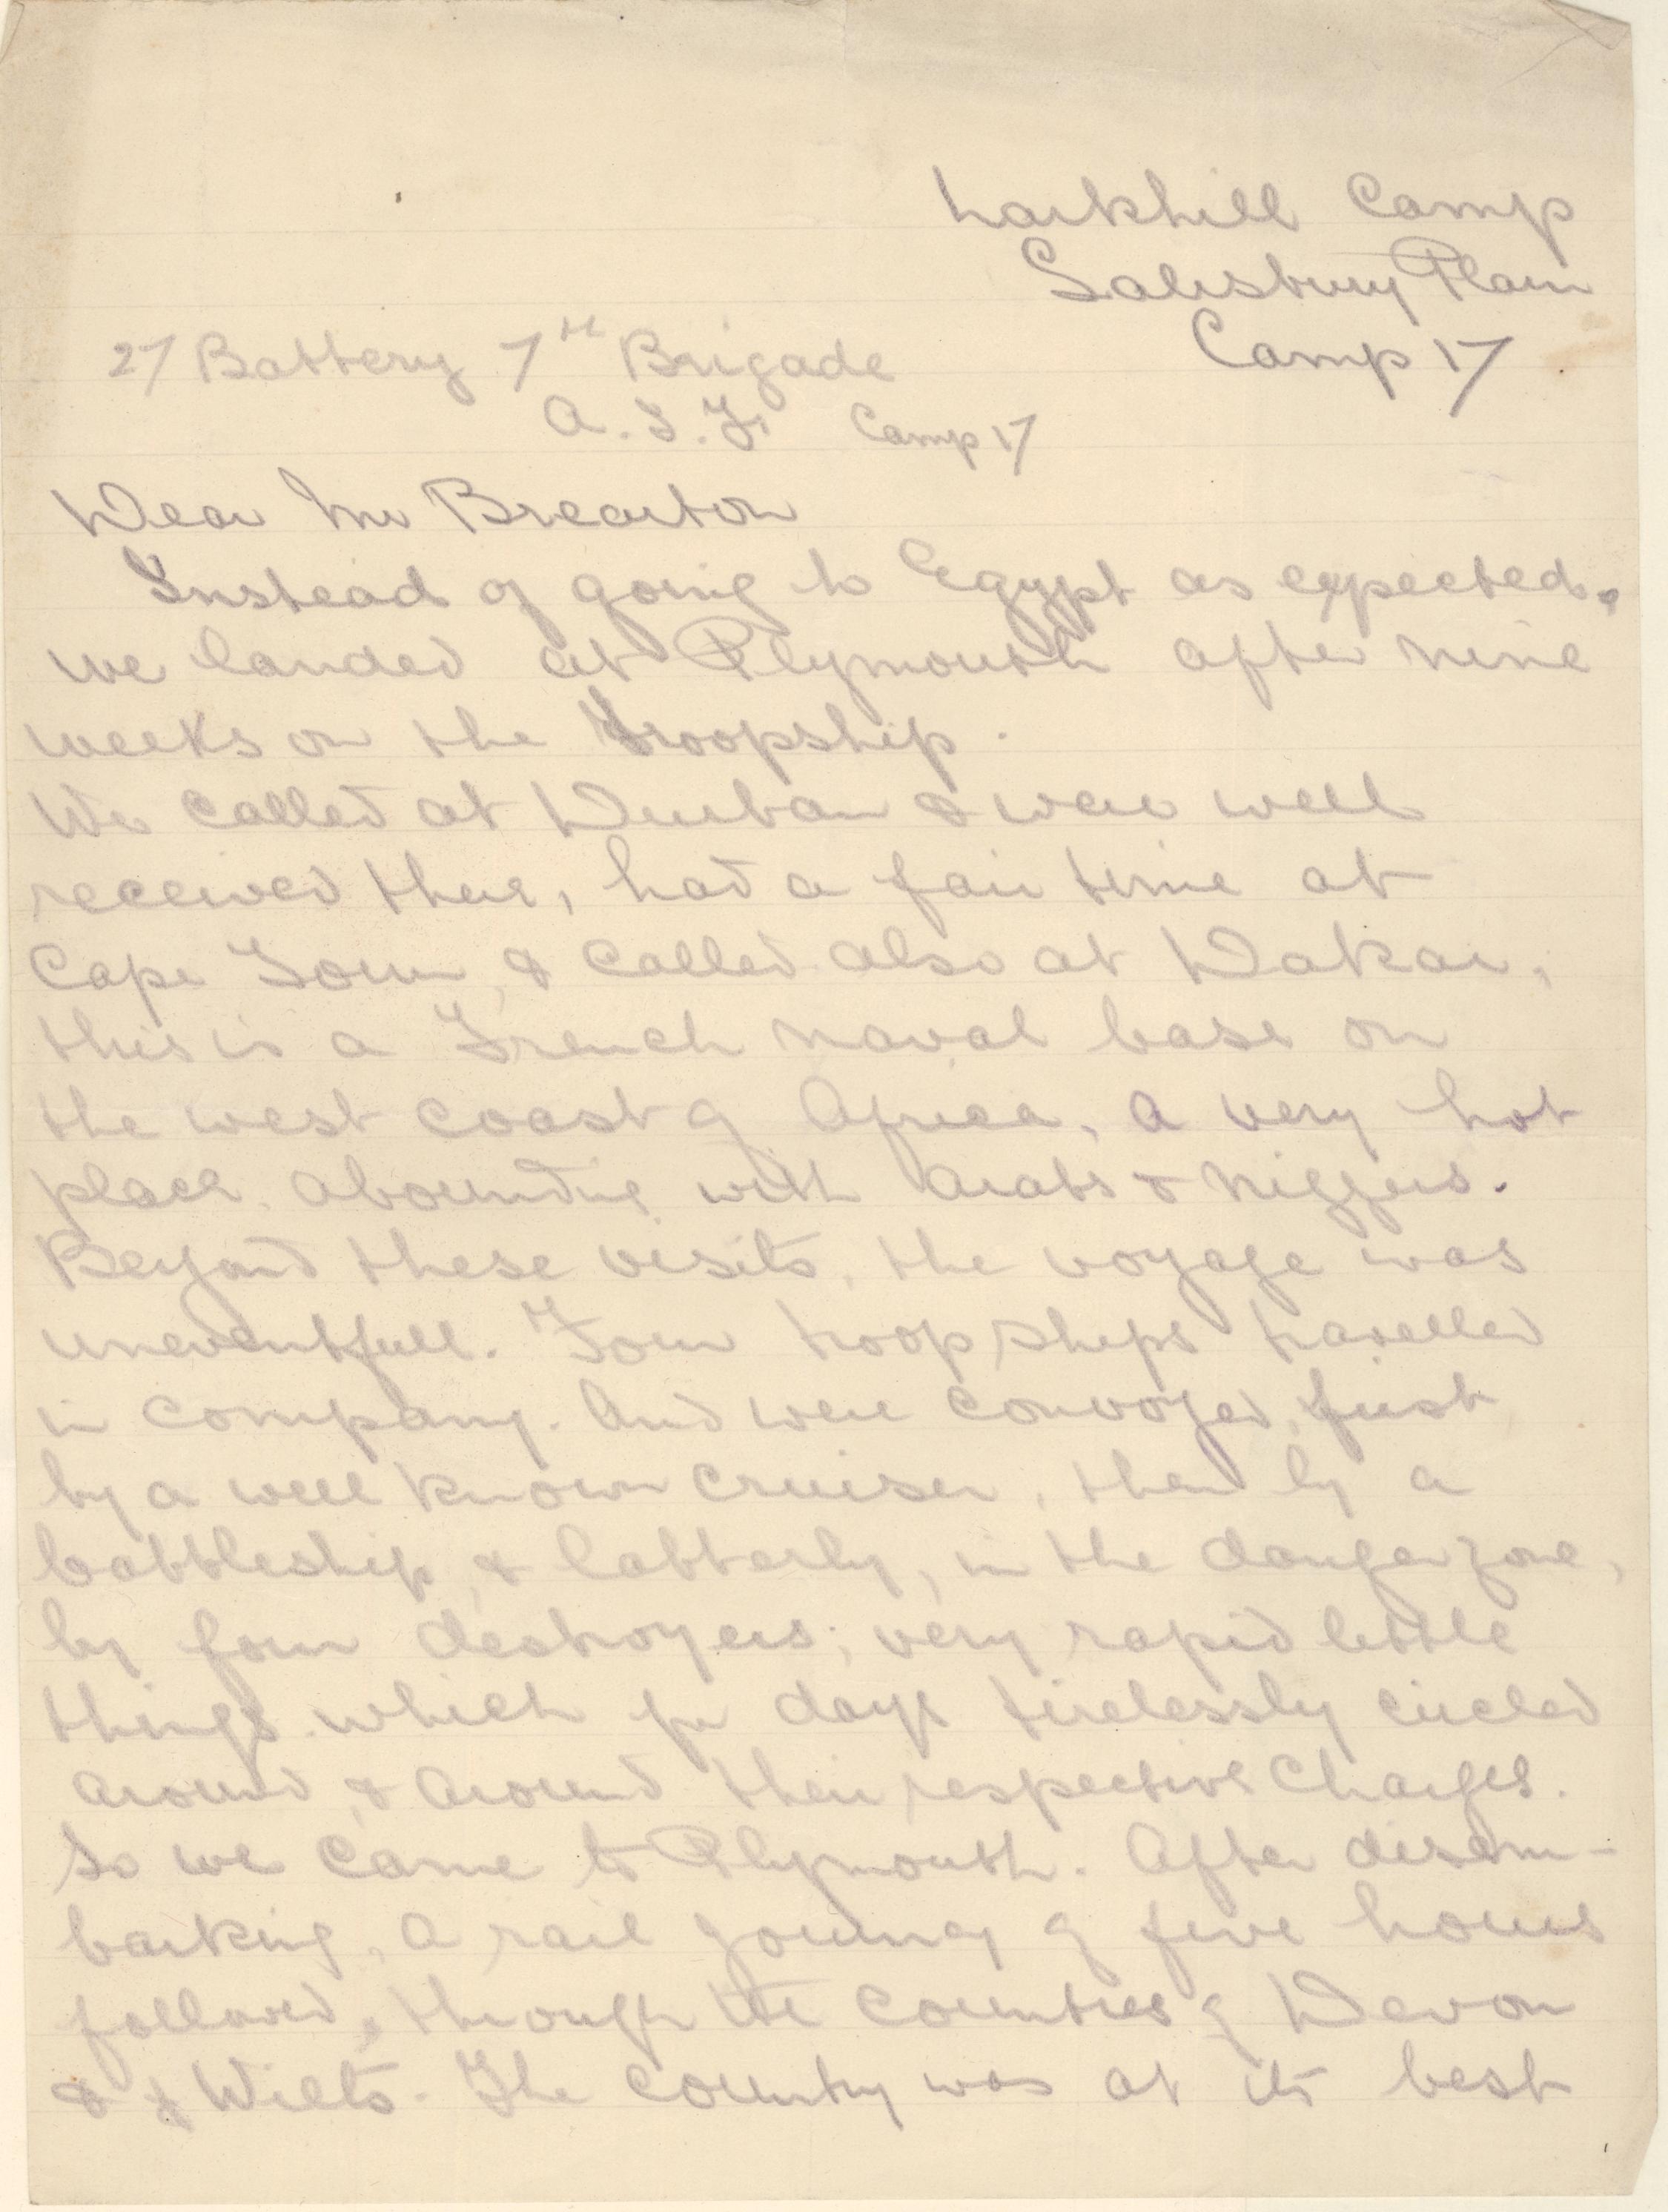 Larkhill Camp
Salisbury Plain
Camp 17
27 Battery 7th Brigade
A.I.F. Camp 17
Dear Mr Brearton
Instead of going to Egypt as expected,
we landed at Plymouth after nine
weeks on the Troopship.
We called at Durban & were well
received there, had a fair time at
Cape Town, & called also at Dakar,
this is a French naval base on
the west coast of Africa, a very hot
place, abounding with Arabs & niggers.
Beyond these visits, the voyage was
uneventfull. Four troop ships travelled
in company. And were convoyed, first
by a well known cruiser, then by a
battleship, & latterly, in the danger zone,
by four destroyers; very rapid little
things which for days tirelessly circled
around, & around their respective charges.
So we came to Plymouth. After disem-
barking, a rail journey of five hours
followed, through the counties of Devon
& Wilts. The country was at its best